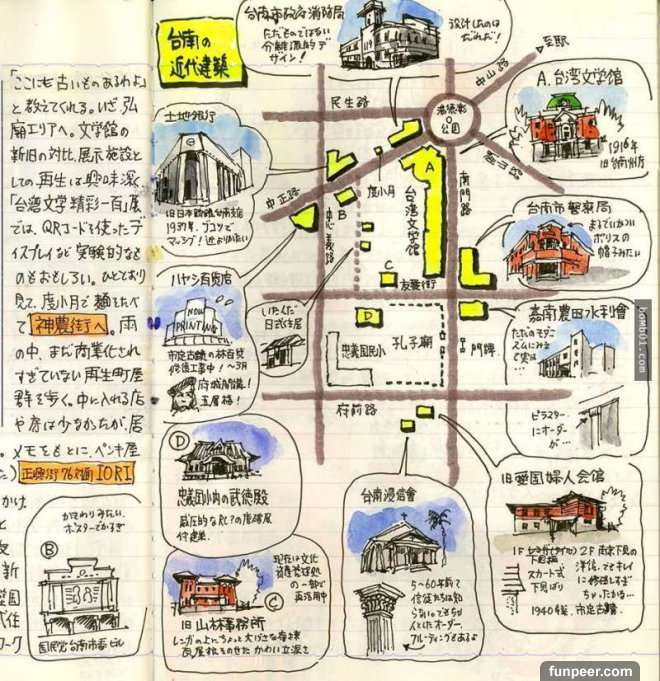 台南の
近代建築
台南市政府消防局
ただものではない
分離派的デ
ザイン!
設計したのは
だれだ!
「ここにも古いものあるわよ」
と教えてくれる。いざ孔
廟エリアへ。文学館の
新旧の対比、展示施設と
しての再生は興味深く
「台湾文学精彩一百」展
では、QRコードを使ったデ
ィスプレイなど実験的なも
のもおもしろい。ひととおり
見て、度小月で麺をたべ
て神農街へ。雨
の中、まだ商業化され
すぎていない再生町屋
群を歩く。中に入れる店
や房は少なかったが、居
メモをもとに、ペンキ屋
正興街76対面 IORI
土地銀行
旧日本勧銀台南支店
1937年。
近よりがたい
民生路
中山路
至駅
湯徳彰
公園
中正路
忠義路
度小月
台湾文学館
南門路
友愛街
府前路
孔子廟
忠義国小
門牌
A
B
C
D
A. 台湾文学館
1916年
旧台南州庁
台南市警察局
まるでいかつい
ポリスの
帽子みたい
嘉南農田水利會
ただのモダニ
ズムにみえ
て実は…
ピラスター
にオーダー
が…
ハヤシ百貨店
NOW
PRINTING
市定古蹟の林百貨
修復工事中!~3月
府城開講!
五層楼!
いたんだ
日式住居
D
忠義国小内の武徳殿
威圧的なRC?の唐破風
付建築。
C
旧山林事務所
現在は文化
資産管理処
の一部で
再活用中
レンガの上にちょっと大げさな寄棟
瓦屋根をのせたかわいい立派さ
B
かざりみたい。
ポスターでかすぎ
国民党台南市委ビル
台南浸信會
5~60年前で
信徒たちは知
らない。でもちゃ
んとしたオーダー。
フルーティングもあるよ
旧愛国婦人会館
1F
スカート式
下見ばり
2F 南京下見の
洋館。でもキレイ
に修理しすぎ
ちゃったかな…
1940年, 市定古蹟。
bomb01.com
funpeer.com